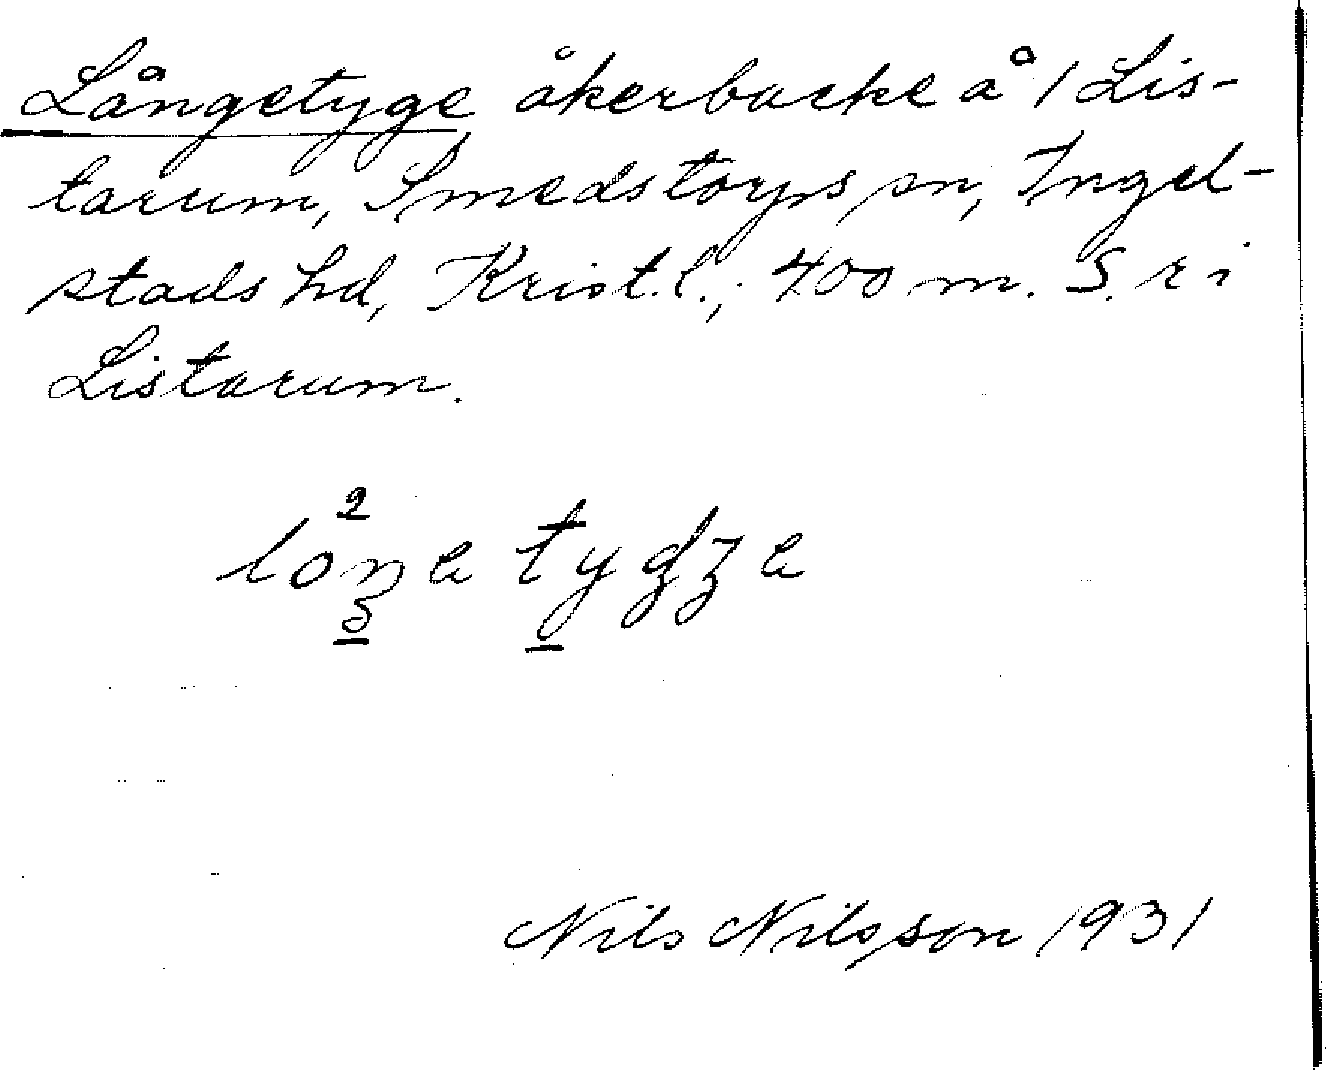 Långetyge åkerbacke å 1 Lis-
tarum, Smedstorps sn, Ingel-
stads hd, Krist.l.; 400 m. S. r i
Listarum.
Nils Nilsson 1931